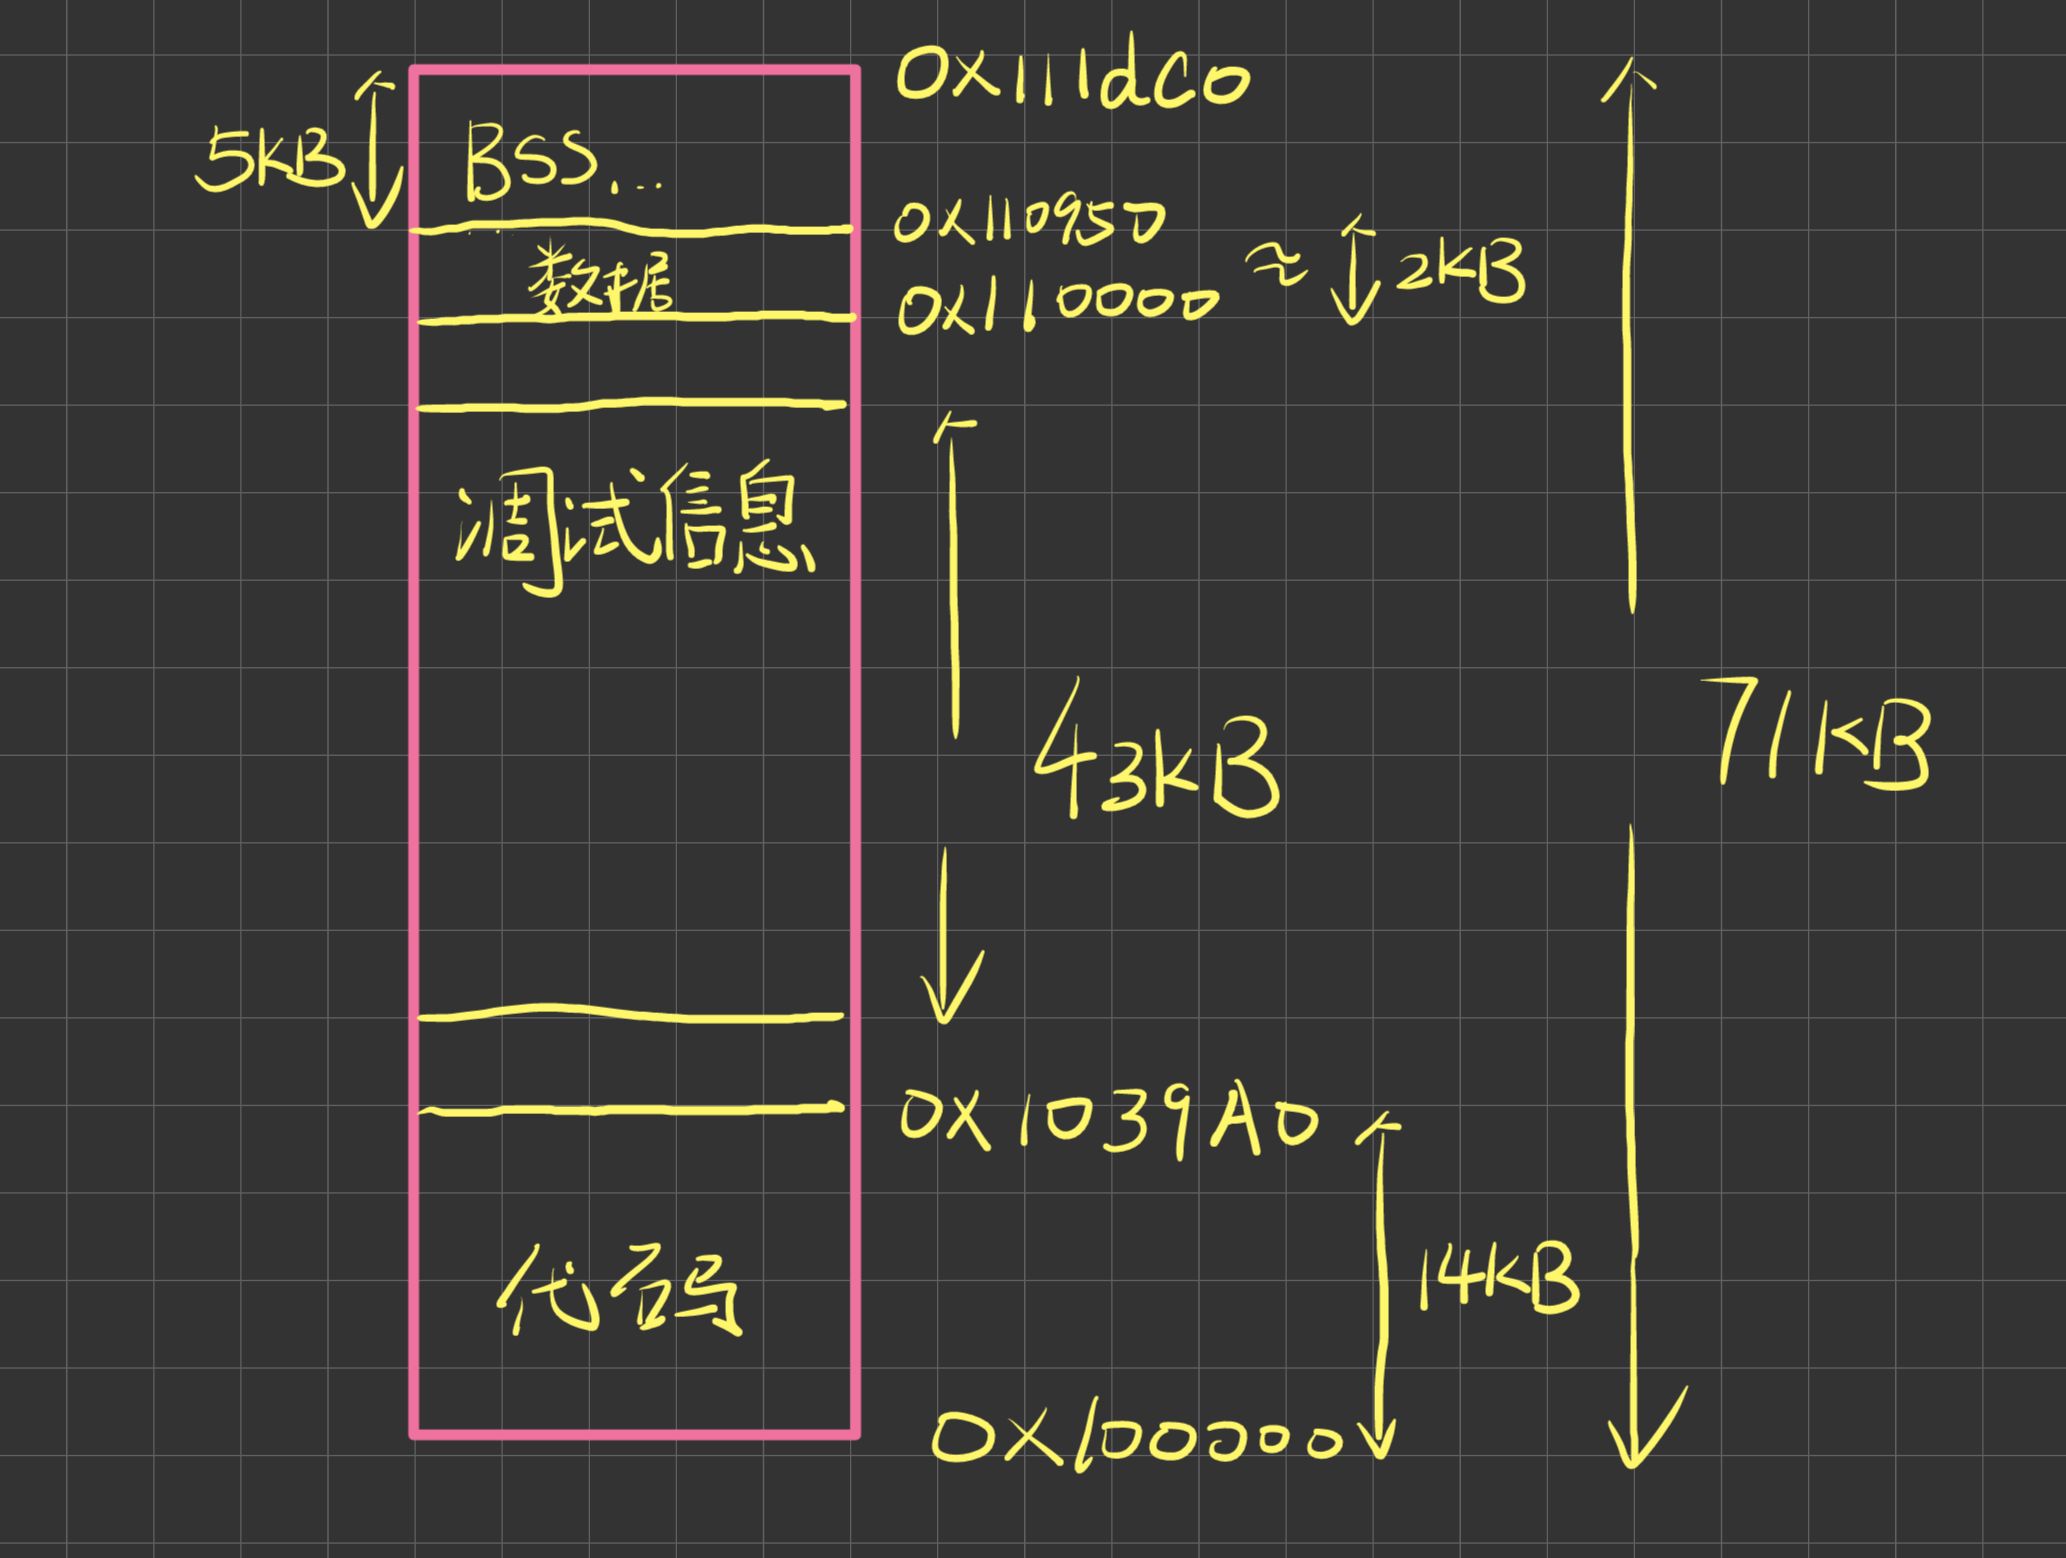 0x111dC0
5KB
BSS...
0x110950
数据
≈ 2KB
0x110000
调试信息
43KB
71KB
0x1039A0
代码
14KB
0x100000